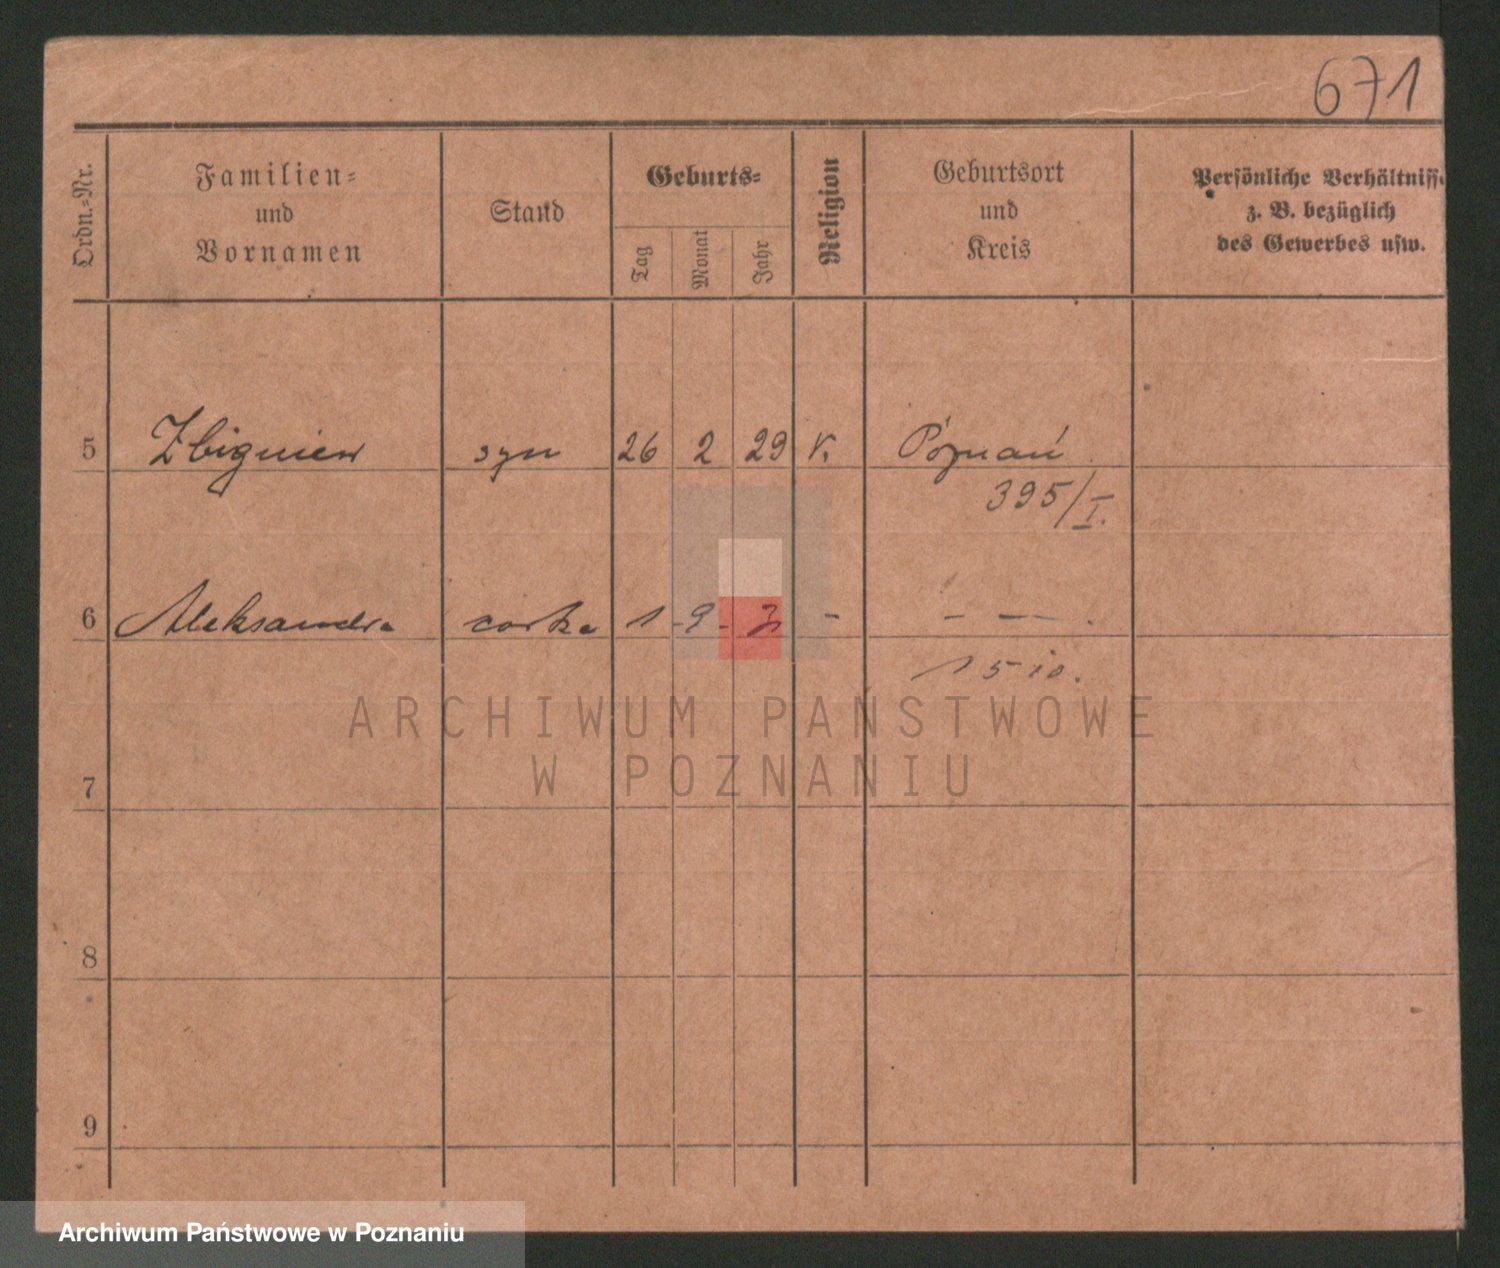 671
Ordn.-Nr.
Familien-
und
Vornamen
Stand
Geburts-
Tag
Monat
Jahr
Religion
Geburtsort
und
Kreis
Persönliche Verhältnisse
z. B. bezüglich
des Gewerbes usw.
5 Zbigniew syn 26 2 29 K. Poznań
395/I.
6 Aleksandra corka 1 - 9 - - - — .
1510.
7
8
9
ARCHIWUM PAŃSTWOWE
W POZNANIU
Archiwum Państwowe w Poznaniu